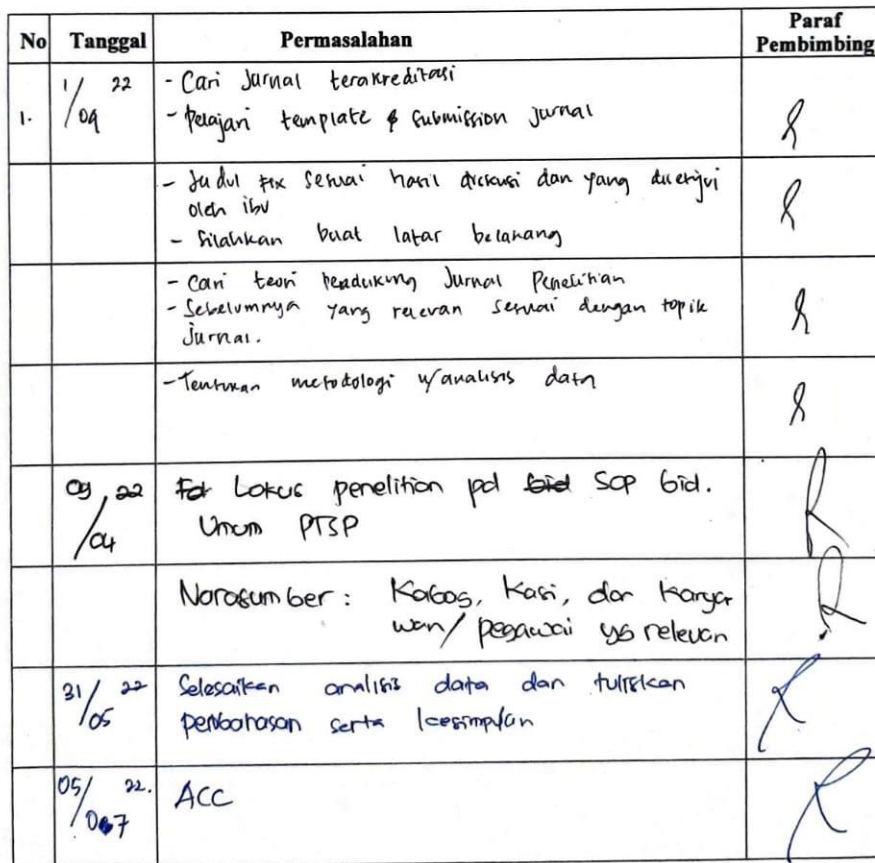 No Tanggal Permasalahan Paraf Pembimbing
1. 1/09 22 - Cari Jurnal terakreditasi
- Pelajari template & submission jurnal
- Judul fix sesuai hasil diskusi dan yang disetujui
oleh ibu
- Silahkan buat latar belakang
- Cari teori pendukung Jurnal Penelitian
- Sebelumnya yang relevan sesuai dengan topik
Jurnal.
- Tentukan metodologi u/ analisis data
09/04 22 Lokus penelitian pd SOP bid.
Umum PTSP
Narasumber : Kabag, Kasi, dan Karya
wan/ pegawai yg relevan
31/05 22 Selesaikan analisis data dan tuliskan
pembahasan serta kesimpulan
05/07 22. ACC